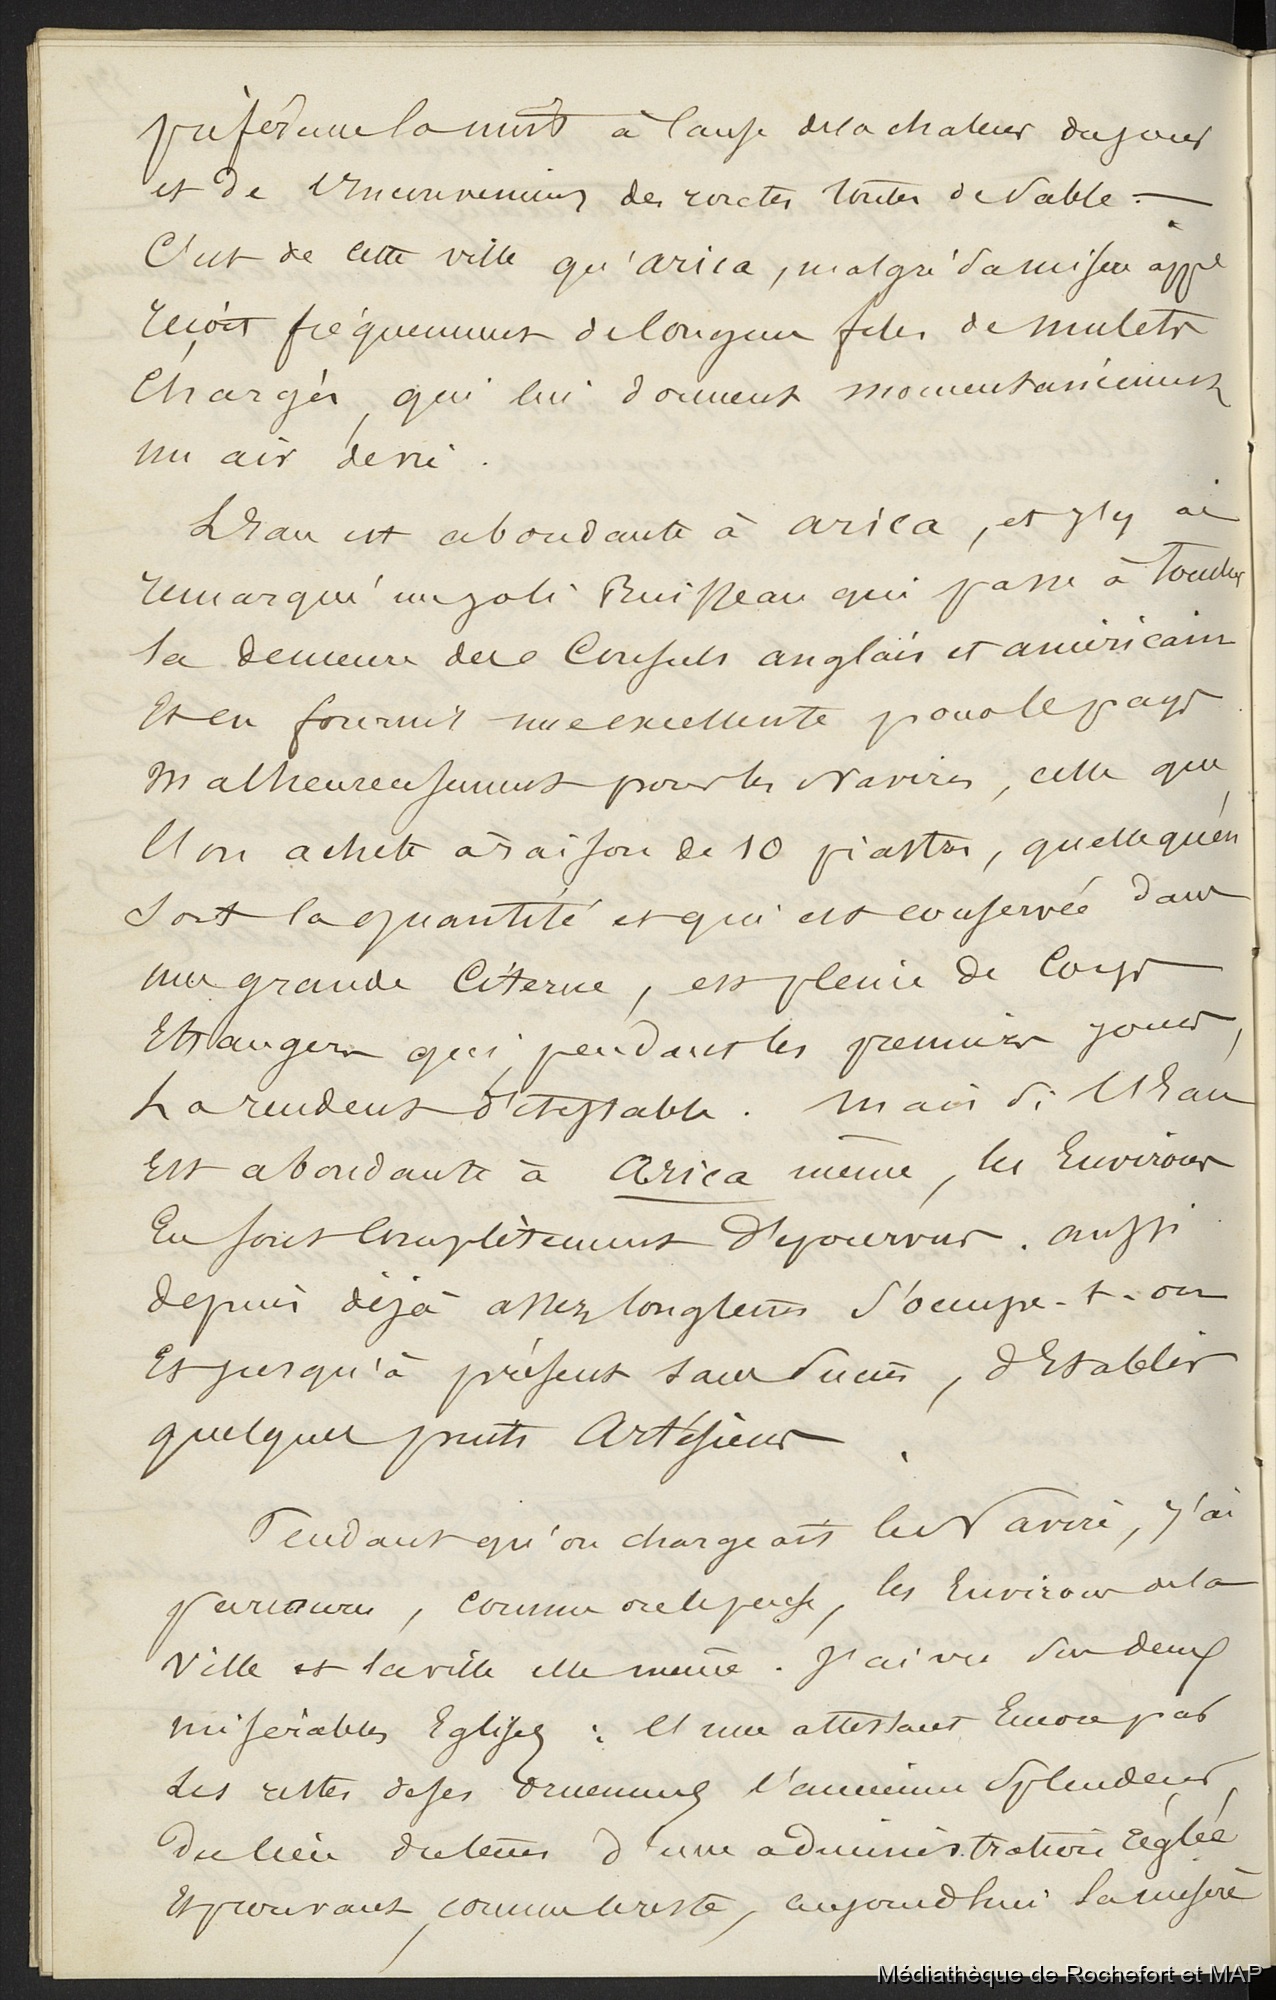 préférence la nuit à cause de la chaleur du jour
et de l'inconvenient des routes toutes de sable. —
C'est de cette ville qu'arica, malgré sa misère app
reçoit fréquemment de longues files de mulets
Chargés, qui lui donnent momentanément
un air de vie.
L'Eau est abondante à arica, et j'y ai
remarqué un joli Ruisseau qui passe à toucher
la demeure des Consuls anglais et américain
Et en fournit une excellente pour le pays
Malheureusement pour les Navires, celle que
l'on achete à raison de 10 piastres, quelle qu'en
soit la quantité et qui est conservée dans
une grande Citerne, est pleine de Corps
Etrangers qui, pendant les premiers jours,
La rendent détestable. Mais si l'Eau
Est abondante à Arica même, les Environs
En sont Complètement dépourvus. aussi
depuis déjà assez longtems s'occupe-t-on
Et jusqu'à présent sans Succès, d'Etablir
quelques puits Artésiens.
Pendant qu'on chargeait le Navire, j'ai
parcouru, comme on le pense, les Environs de la
Ville et la ville elle même. J'ai vu ses deux
misérables Eglises : l'une attestant Encore par
Les restes de ses ornemens l'ancienne Splendeur
du lieu du tems d'une administration réglée
Et prouvant, comme le reste, aujourd'hui la misère
Médiathèque de Rochefort et MAP